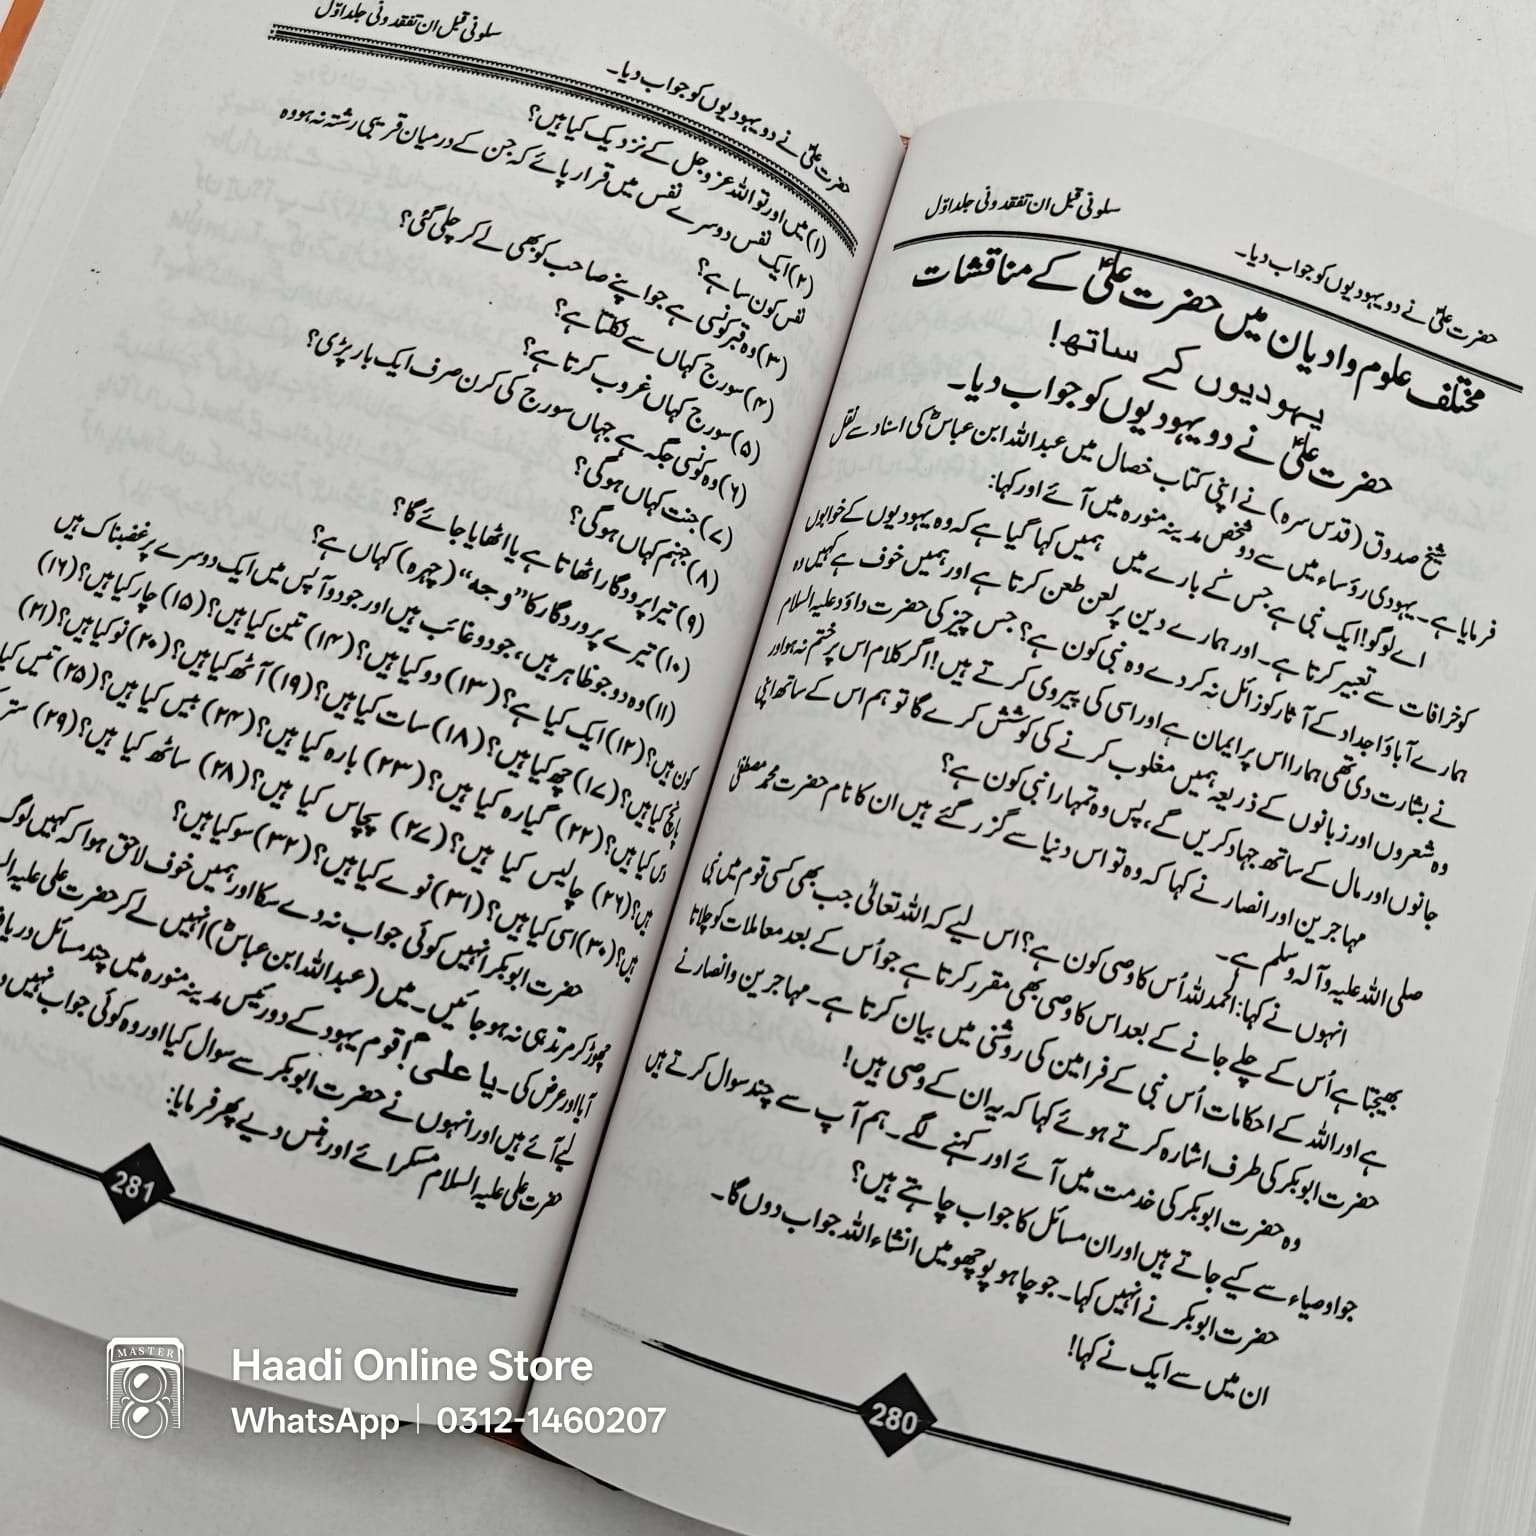 سلونی قبل ان تفقدونی جلد اوّل
حضرت علیؑ نے دو یہودیوں کو جواب دیا۔
مختلف علوم و ادیان میں حضرت علیؑ کے مناقشات
یہودیوں کے ساتھ!
حضرت علیؑ نے دو یہودیوں کو جواب دیا۔
شیخ صدوق (قدس سرہ) نے اپنی کتاب خصال میں عبداللہ ابن عباسؓ کی اسناد سے نقل
فرمایا ہے۔ یہودی رؤساء میں سے دو شخص مدینہ منورہ میں آئے اور کہا:
اے لوگو! ایک نبی ہے جس کے بارے میں ہمیں کہا گیا ہے کہ وہ یہودیوں کے خوابوں
کو خرافات سے تعبیر کرتا ہے۔ اور ہمارے دین پر لعن طعن کرتا ہے اور ہمیں خوف ہے کہیں وہ
ہمارے آباؤ اجداد کے آثار کو زائل نہ کر دے وہ نبی کون ہے؟ جس چیز کی حضرت داؤد علیہ السلام
نے بشارت دی تھی ہمارا اس پر ایمان ہے اور اسی کی پیروی کرتے ہیں! اگر کلام اس پر ختم نہ ہو اور
وہ شعروں اور زبانوں کے ذریعہ ہمیں مغلوب کرنے کی کوشش کرے گا تو ہم اس کے ساتھ اپنی
جانوں اور مال کے ساتھ جہاد کریں گے، پس وہ تمہارا نبی کون ہے؟
مہاجرین اور انصار نے کہا کہ وہ تو اس دنیا سے گزر گئے ہیں ان کا نام حضرت محمد مصطفیٰ
صلی اللہ علیہ وآلہ وسلم ہے۔
انہوں نے کہا: الحمدللہ اُس کا وصی کون ہے؟ اس لیے کہ اللہ تعالیٰ جب بھی کسی قوم میں نبی
بھیجتا ہے اُس کے چلے جانے کے بعد اس کا وصی بھی مقرر کرتا ہے جو اُس کے بعد معاملات کو چلاتا
ہے اور اللہ کے احکامات اُس نبی کے فرامین کی روشنی میں بیان کرتا ہے۔ مہاجرین وانصار نے
حضرت ابوبکر کی طرف اشارہ کرتے ہوئے کہا کہ یہ ان کے وصی ہیں!
وہ حضرت ابوبکر کی خدمت میں آئے اور کہنے لگے۔ ہم آپ سے چند سوال کرتے ہیں
جو اوصیاء سے کیے جاتے ہیں اور ان مسائل کا جواب چاہتے ہیں؟
حضرت ابوبکر نے انہیں کہا۔ جو چاہو پوچھو میں انشاء اللہ جواب دوں گا۔
ان میں سے ایک نے کہا!
280
سلونی قبل ان تفقدونی جلد اوّل
حضرت علیؑ نے دو یہودیوں کو جواب دیا۔
(۱) میں اور تو اللہ عزوجل کے نزدیک کیا ہیں؟
(۲) ایک نفس دوسرے نفس میں قرار پائے کہ جن کے درمیان قریبی رشتہ نہ ہو وہ
نفس کون سا ہے؟
(۳) وہ قبر کونسی ہے جو اپنے صاحب کو بھی لے کر چلی گئی؟
(۴) سورج کہاں سے نکلتا ہے؟
(۵) سورج کہاں غروب کرتا ہے؟
(۶) وہ کونسی جگہ ہے جہاں سورج کی کرن صرف ایک بار پڑی؟
(۷) جنت کہاں ہوگی؟
(۸) جہنم کہاں ہوگی؟
(۹) تیرا پروردگار اٹھاتا ہے یا اٹھایا جائے گا؟
(۱۰) تیرے پروردگار کا "وجہ" (چہرہ) کہاں ہے؟
(۱۱) وہ دو جو ظاہر ہیں، جو دو غائب ہیں اور جو دو آپس میں ایک دوسرے پر غضبناک ہیں
کون ہیں؟ (۱۲) ایک کیا ہے؟ (۱۳) دو کیا ہیں؟ (۱۴) تین کیا ہیں؟ (۱۵) چار کیا ہیں؟ (۱۶)
پانچ کیا ہیں؟ (۱۷) چھ کیا ہیں؟ (۱۸) سات کیا ہیں؟ (۱۹) آٹھ کیا ہیں؟ (۲۰) نو کیا ہیں؟ (۲۱)
دس کیا ہیں؟ (۲۲) گیارہ کیا ہیں؟ (۲۳) بارہ کیا ہیں؟ (۲۴) بیس کیا ہیں؟ (۲۵) تیس کیا
ہیں؟ (۲۶) چالیس کیا ہیں؟ (۲۷) پچاس کیا ہیں؟ (۲۸) ساٹھ کیا ہیں؟ (۲۹) ستر
ہیں؟ (۳۰) اسی کیا ہیں؟ (۳۱) نوے کیا ہیں؟ (۳۲) سو کیا ہیں؟
حضرت ابوبکر انہیں کوئی جواب نہ دے سکا اور ہمیں خوف لاحق ہوا کہ کہیں لوگ
چھوڑ کر مرتد ہی نہ ہو جائیں۔ میں (عبداللہ ابن عباسؓ) انہیں لے کر حضرت علی علیہ
آیا اور عرض کی۔ یا علیؑ! قوم یہود کے دو رئیس مدینہ منورہ میں چند مسائل
لیے آئے ہیں اور انہوں نے حضرت ابوبکر سے سوال کیا اور وہ کوئی جواب نہیں
حضرت علی علیہ السلام مسکرائے اور ہنس دیے پھر فرمایا:
281
MASTER
Haadi Online Store
WhatsApp | 0312-1460207